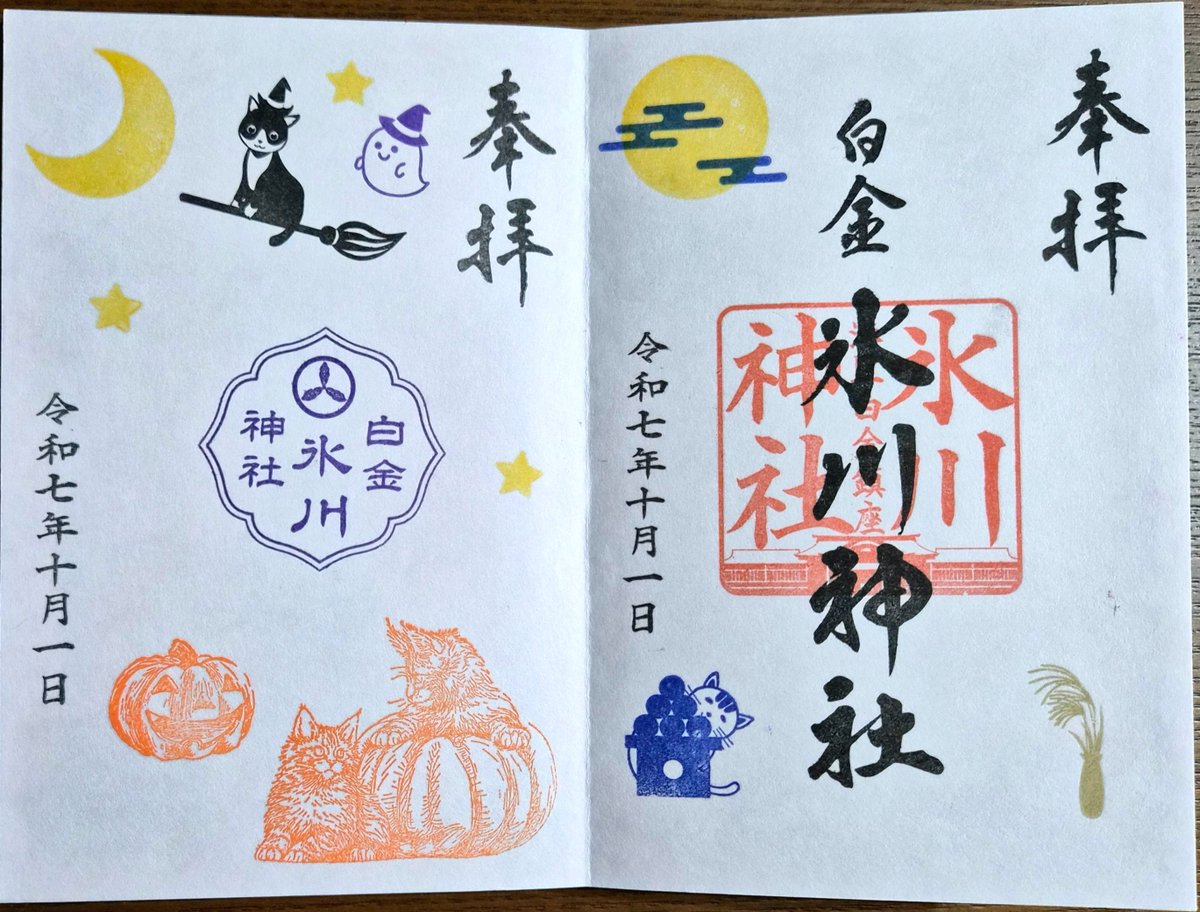 奉拝
白金
氷川神社
氷川
神社
白金鎮座
令和七年十月一日
奉拝
白金
氷川
神社
令和七年十月一日